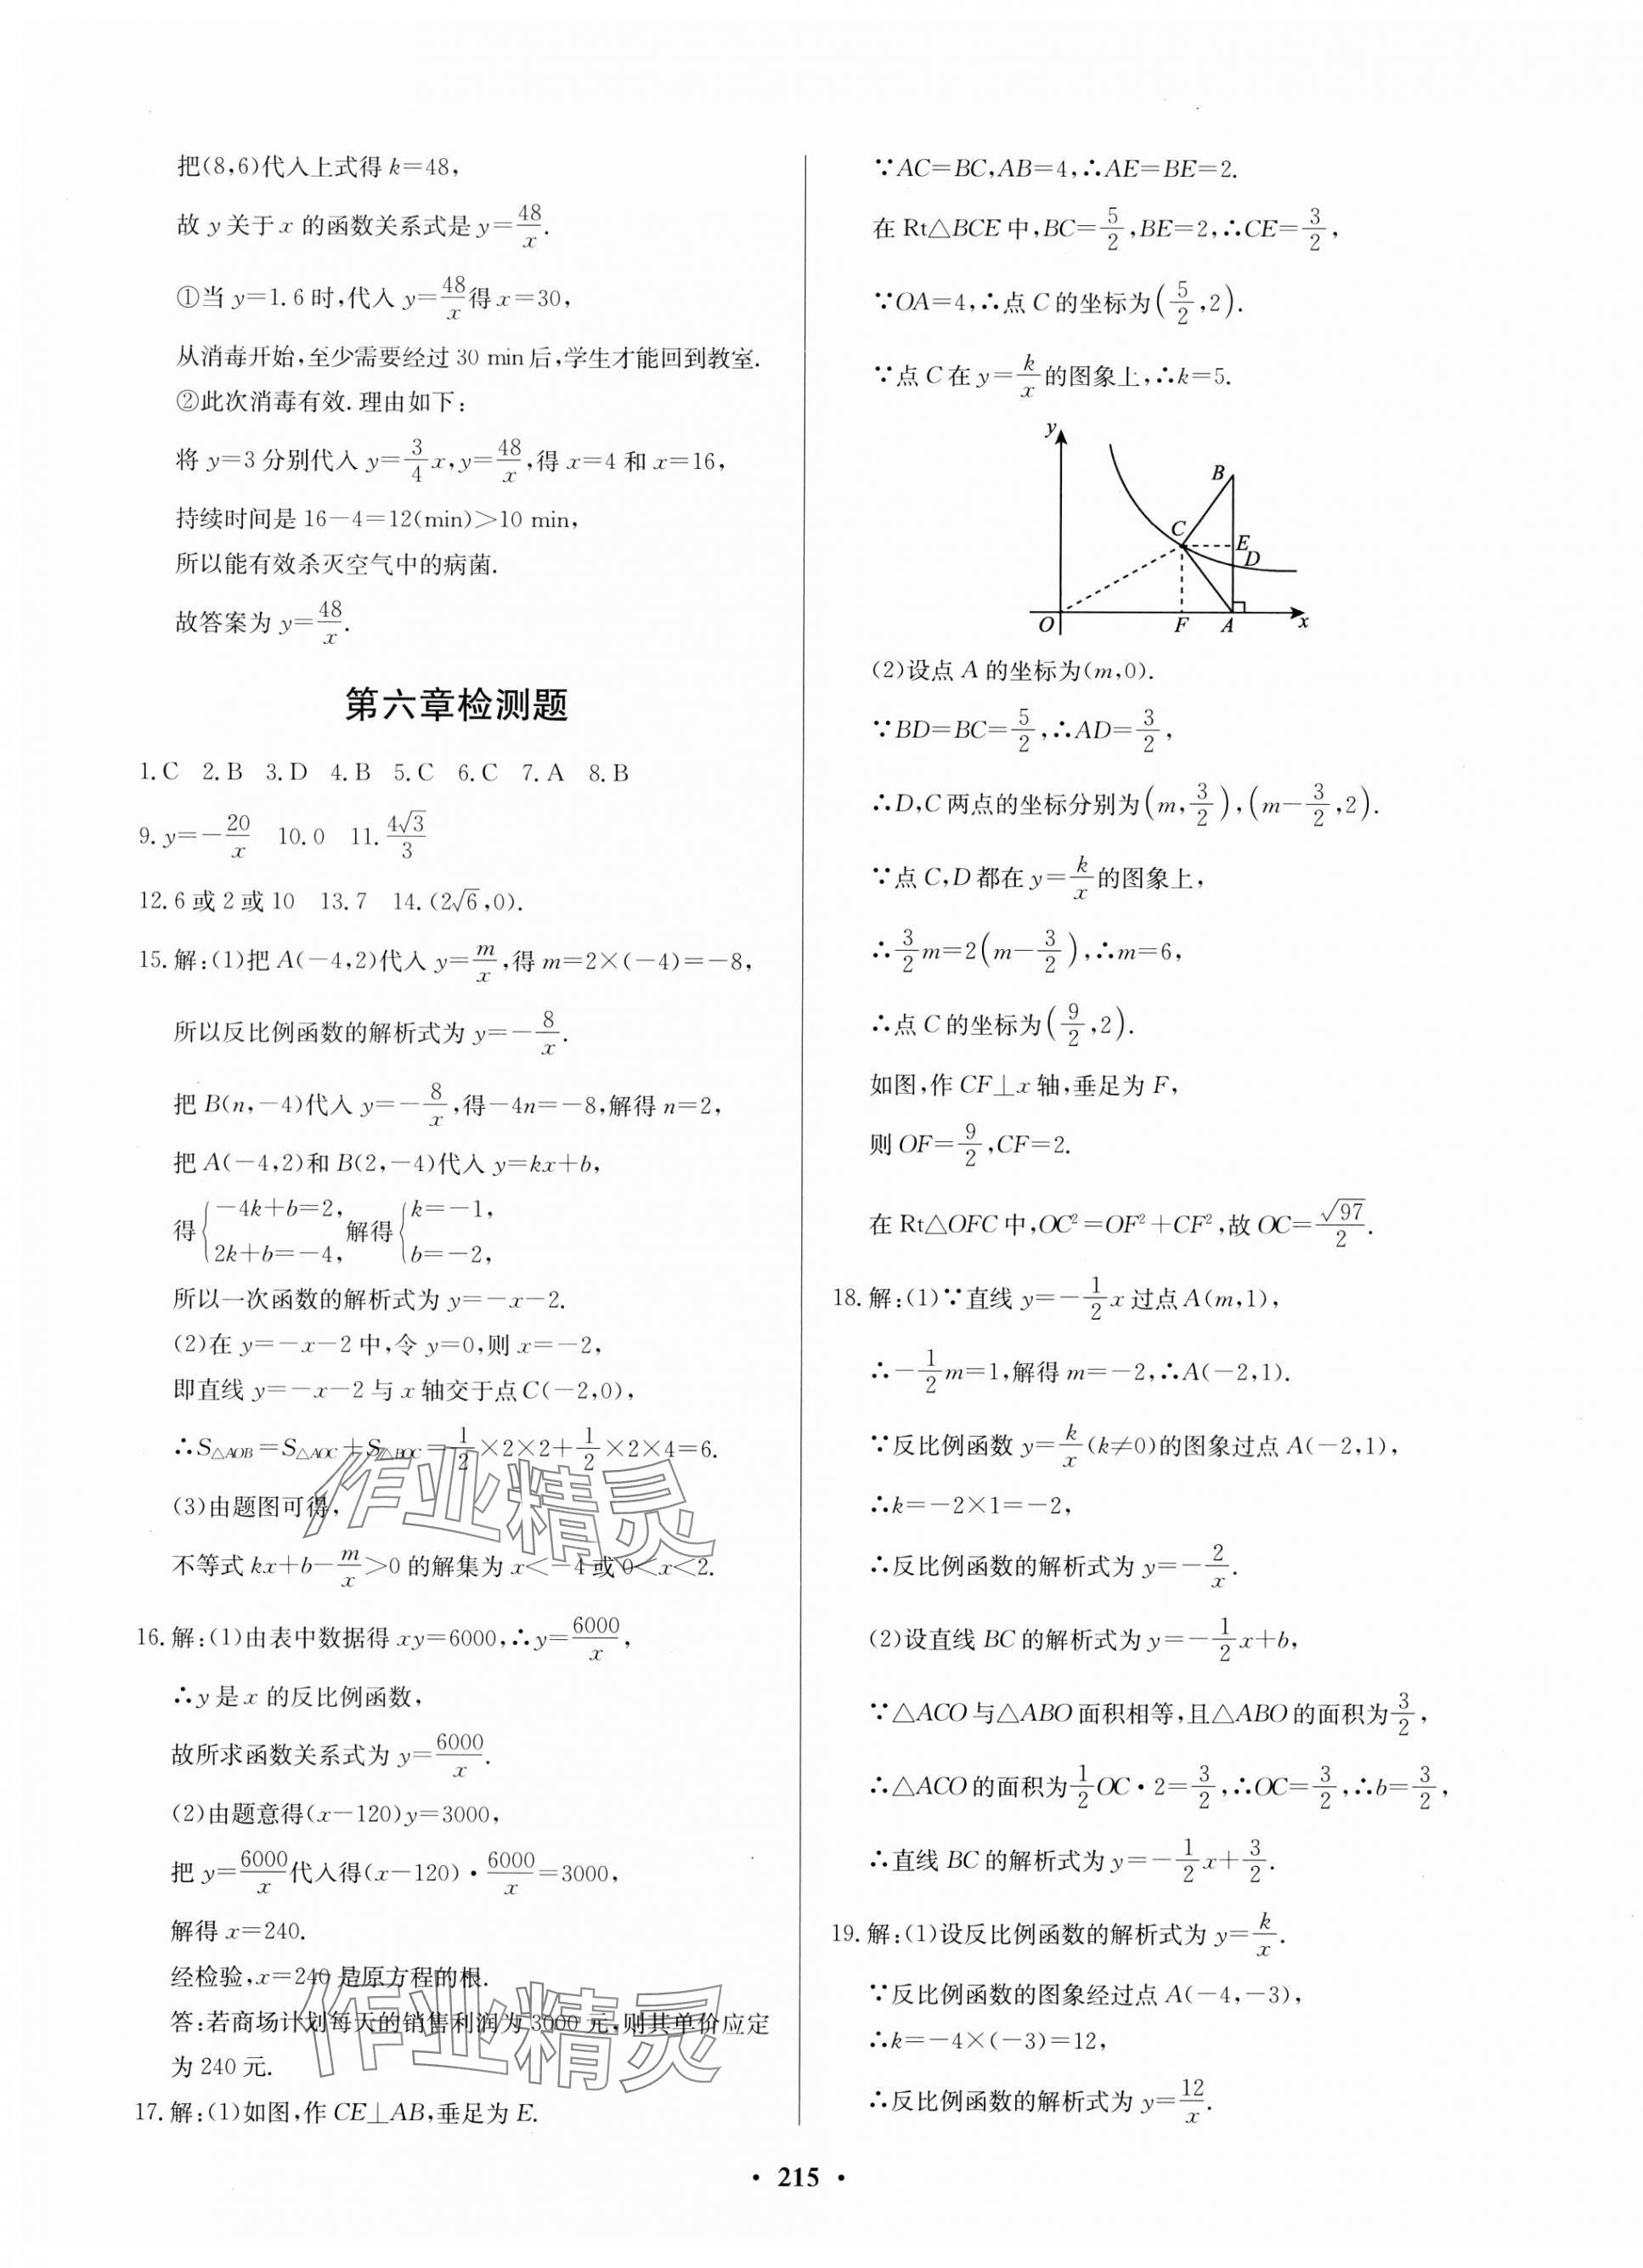 把(8,6)代入上式得 k=48,
故 y 关于 x 的函数关系式是 y=48/x.
①当 y=1.6 时,代入 y=48/x得 x=30,
从消毒开始,至少需要经过 30 min 后,学生才能回到教室.
②此次消毒有效.理由如下:
将 y=3 分别代入 y=3/4x,y=48/x,得 x=4 和 x=16,
持续时间是 16-4=12(min)>10 min,
所以能有效杀灭空气中的病菌.
故答案为 y=48/x.
第六章检测题
1.C 2.B 3.D 4.B 5.C 6.C 7.A 8.B
9.y=-20/x 10.0 11.4√3/3
12.6 或 2 或 10 13.7 14.(2√6,0).
15.解:(1)把 A(-4,2)代入 y=m/x,得 m=2×(-4)=-8,
所以反比例函数的解析式为 y=-8/x.
把 B(n,-4)代入 y=-8/x,得-4n=-8,解得 n=2,
把 A(-4,2)和 B(2,-4)代入 y=kx+b,
得{-4k+b=2, 2k+b=-4, 解得{k=-1, b=-2,
所以一次函数的解析式为 y=-x-2.
(2)在 y=-x-2 中,令 y=0,则 x=-2,
即直线 y=-x-2 与 x 轴交于点 C(-2,0),
∴S△AOB=S△AOC+S△BOC=1/2×2×2+1/2×2×4=6.
(3)由题图可得,
不等式 kx+b-m/x>0 的解集为 x<-4 或 0<x<2.
16.解:(1)由表中数据得 xy=6000,∴y=6000/x,
∴y 是 x 的反比例函数,
故所求函数关系式为 y=6000/x.
(2)由题意得(x-120)y=3000,
把 y=6000/x代入得(x-120)·6000/x=3000,
解得 x=240.
经检验,x=240 是原方程的根.
答:若商场计划每天的销售利润为 3000 元,则其单价应定
为 240 元.
17.解:(1)如图,作 CE⊥AB,垂足为 E.
∵AC=BC,AB=4,∴AE=BE=2.
在 Rt△BCE 中,BC=5/2,BE=2,∴CE=3/2,
∵OA=4,∴点 C 的坐标为(5/2,2).
∵点 C 在 y=k/x的图象上,∴k=5.
y
B
C
E
D
O
F
A
x
(2)设点 A 的坐标为(m,0).
∵BD=BC=5/2,∴AD=3/2,
∴D,C 两点的坐标分别为(m,3/2),(m-3/2,2).
∵点 C,D 都在 y=k/x的图象上,
∴3/2m=2(m-3/2),∴m=6,
∴点 C 的坐标为(9/2,2).
如图,作 CF⊥x 轴,垂足为 F,
则 OF=9/2,CF=2.
在 Rt△OFC 中,OC²=OF²+CF²,故 OC=√97/2.
18.解:(1)∵直线 y=-1/2x 过点 A(m,1),
∴-1/2m=1,解得 m=-2,∴A(-2,1).
∵反比例函数 y=k/x(k≠0)的图象过点 A(-2,1),
∴k=-2×1=-2,
∴反比例函数的解析式为 y=-2/x.
(2)设直线 BC 的解析式为 y=-1/2x+b,
∵△ACO 与△ABO 面积相等,且△ABO 的面积为3/2,
∴△ACO 的面积为1/2OC·2=3/2,∴OC=3/2,∴b=3/2,
∴直线 BC 的解析式为 y=-1/2x+3/2.
19.解:(1)设反比例函数的解析式为 y=k/x.
∵反比例函数的图象经过点 A(-4,-3),
∴k=-4×(-3)=12,
∴反比例函数的解析式为 y=12/x.
作业精灵
作业精灵
· 215 ·